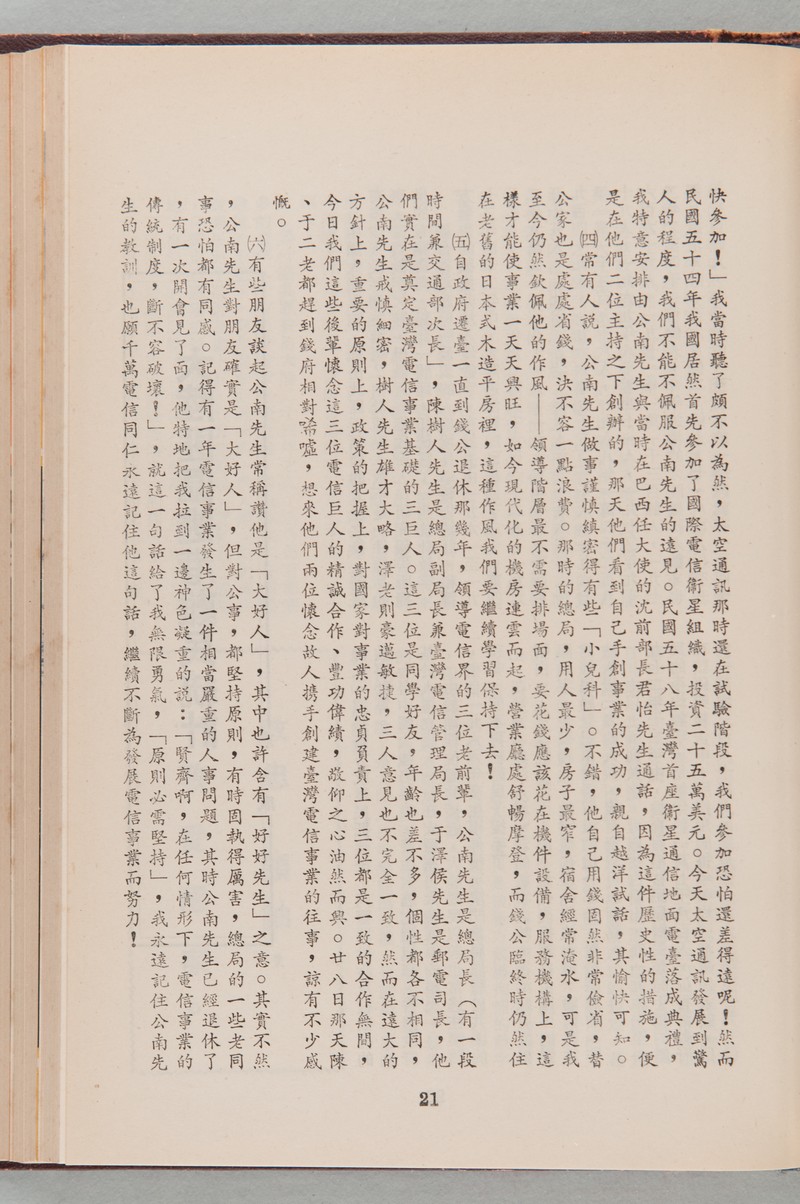 快參加！」我當時聽了頗不以為然，太空通訊那時還在試驗階段，我們參加恐怕還差得遠呢！然而
民國五十四年我國居然首先參加了國際電信衛星組織，投資二十五萬美元。今天太空通訊發展到驚
人的程度，我們不能不佩服公南先生的遠見。民國五十八年臺灣首座衛星通信地面電臺落成典禮，
我特意安排由公南先生與當時在巴西任大使的沈前部長君怡先生通話，因為這件歷史性的措施，便
是在他們二位主持之下創辦的，那天他們看到自己手創事業的成功，親自越洋試話，其愉快可知。
㈣常有人說，公南先生做事謹慎縝密得有些「小兒科」。不錯，他自己用錢固然非常儉省，替
公家也是處處省錢，決不容一點浪費。那時的總局，用人最少，房子最窄，宿舍經常淹水，可是我
至今仍然欽佩他的作風——領導階層最不需要排場面，要花錢應該花在機件設備，服務機構上，這
樣才能使事業一天天興旺，如今現代化的機房連雲而起，營業廳處舒暢摩登，而錢公臨終時仍然住
在老舊的日本式木造平房裡，這種作風我們要繼續學習保持下去！
㈤自政府遷臺一直到錢公退休那幾年，領導電信界的三位老前輩，公南先生是總局長（有一段
時間兼交通部次長」，陳樹人先生是總局副局長兼臺灣電信管理局長，于澤侯先生是郵電司長，他
們實在是奠定臺灣電信事業基礎的三巨人。這三位是同學好友，年齡也差不多，個性都各不相同，
公南先生戒慎細密，樹人先生雄才大略，澤老則豪邁敏捷，三人意見也不完全一致，然而在遠大的
方針上，重要的原則上，政策的把握上，對國家對事業的忠貞負責上，三位都是一致的合作無間，
今日我們這些後輩懷念這三位電信巨人的精誠合作、豐功偉績，敬仰之心油然而興。廿八日那天陳
、于二老都趕到錢府相對唏噓，想來他們兩位懷念故人携手創建臺灣電信事業的往事，諒有不少感
慨。
㈥有些朋友談起公南先生常稱讚他是「大好人」，其中也許含有「好好先生」之意。其實不然
，公南先生對朋友確實是「大好人」，但對公事，都堅持原則，有時固執得厲害，總局的一些老同
事恐怕都有同感。記得有一年電信事業發生了一件相當嚴重的人事問題，其時公南先生已經退休了
，有一次開會見了面，他特地把我拉到一邊神色凝重的說：「賢齊啊，在任何情形下，電信事業的
傳統制度，斷不容破壞！」，就這一句話給了我無限勇氣，「原則必需堅持」，我永遠記住公南先
生的教訓，也願千萬電信同仁永遠記住他這句話，繼續不斷為發展電信事業而努力！
21